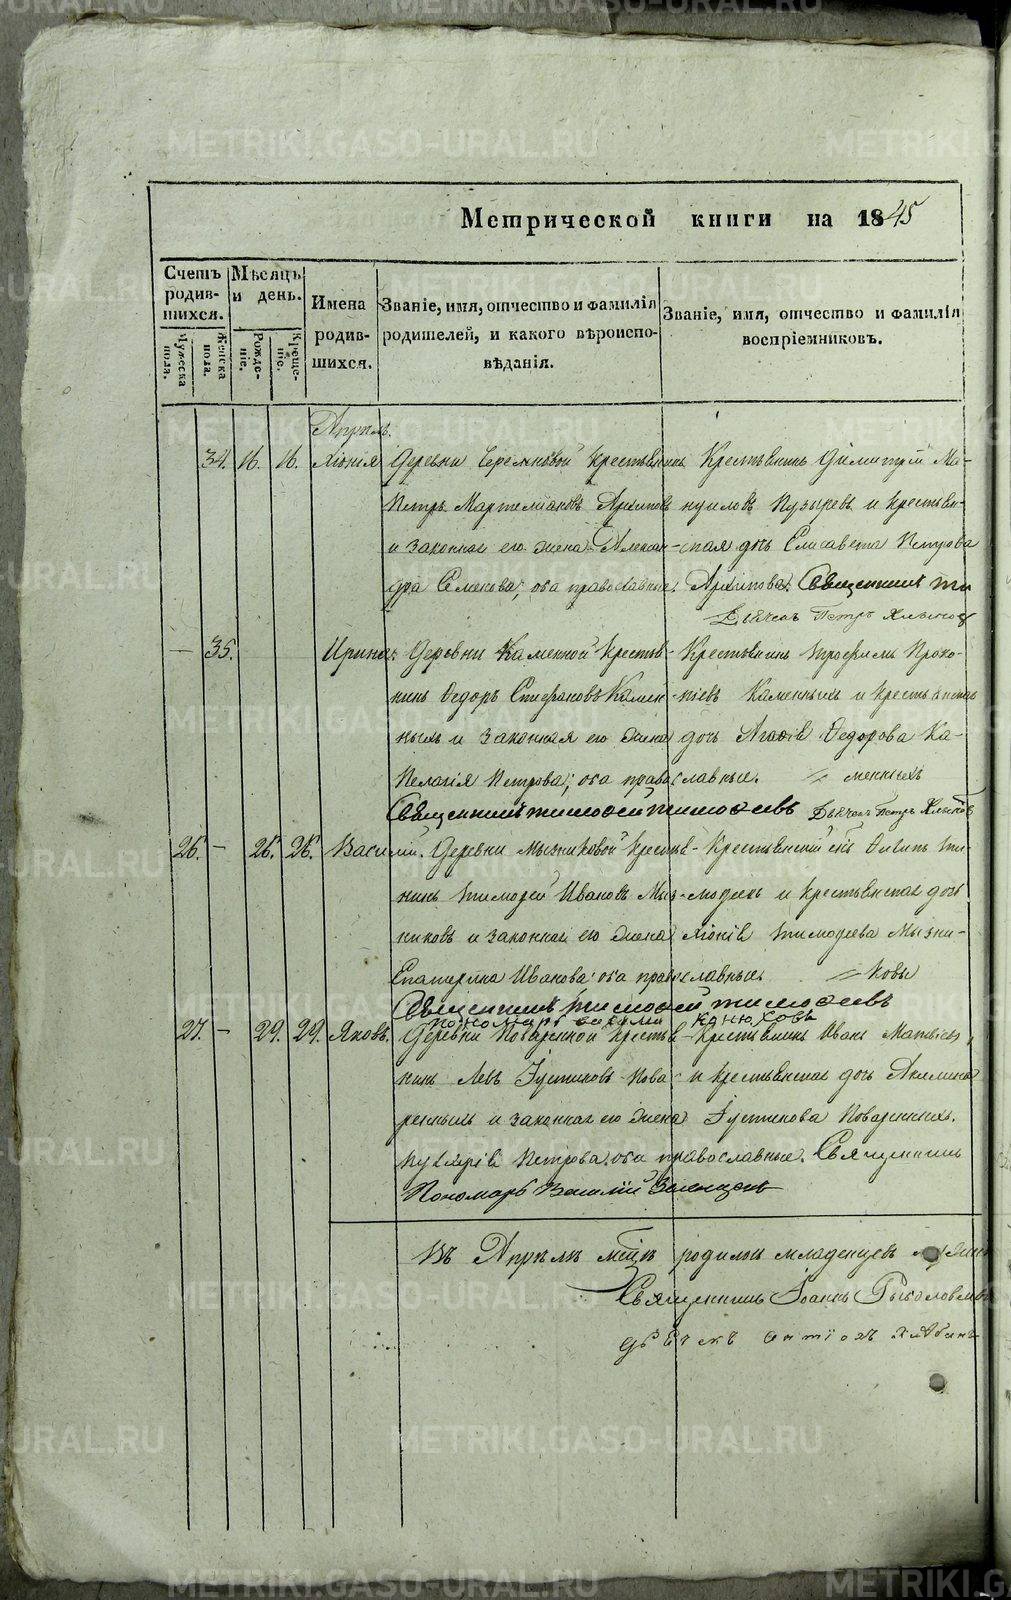 Метрической книги на 1845
Счетъ родившихся.
Мужеска пола.
Женска пола.
Мѣсяцъ и день.
Рожденіе.
Крещеніе.
Имена родившихся.
Званіе, имя, отчество и фамилія родителей, и какого вѣроисповѣданія.
Званіе, имя, отчество и фамилія воспріемниковъ.
Апрѣль.
34. 16. 16. Хіонія
Деревни крестьянинъ
Петръ Архиповъ
и законная его жена Алексан-
дра Семенова, оба православные.
Крестьянинъ Димитрій Ма-
нуиловъ Пузыревъ и крестьян-
ская дочь Елисавета Петрова
Архипова. Священникъ
Дьячекъ Петръ
— 35. Ирина.
Деревни Каменной крестья-
нинъ Федоръ Стефановъ Камен-
ныхъ и законная его жена
Пелагія Петрова, оба православные.
Крестьянинъ Трофимъ Проко-
пьевъ Каменныхъ и крестьянская
дочь Агафія Федорова Ка-
менныхъ
Священникъ Тимофей Тимофеевъ Дьячекъ Петръ
26. — 26. 26. Василій.
Деревни Мызниковой крестья-
нинъ Тимофей Иванов Мыз-
никовъ и законная его жена
Екатерина Иванова, оба православные.
Крестьянскій сынъ Филипъ Ти-
мофеевъ и крестьянская дочь
Хіонія Тимофеева Мызни-
кова
Священникъ Тимофей Тимофеевъ
Пономарь Конюховъ
27. — 29. 29. Яковъ.
Деревни Поваренной крестья-
нинъ Левъ Іустиновъ Пова-
ренныхъ и законная его жена
Пулхерія Петрова, оба православные.
Крестьянинъ Иванъ
и крестьянская дочь Акилина
Іустинова Поваренныхъ.
Священникъ
Пономарь Василій
Въ Апрѣлѣ мѣсяцѣ родилось младенцевъ
Священникъ Іоаннъ
дьячекъ
METRIKI.GASO-URAL.RU